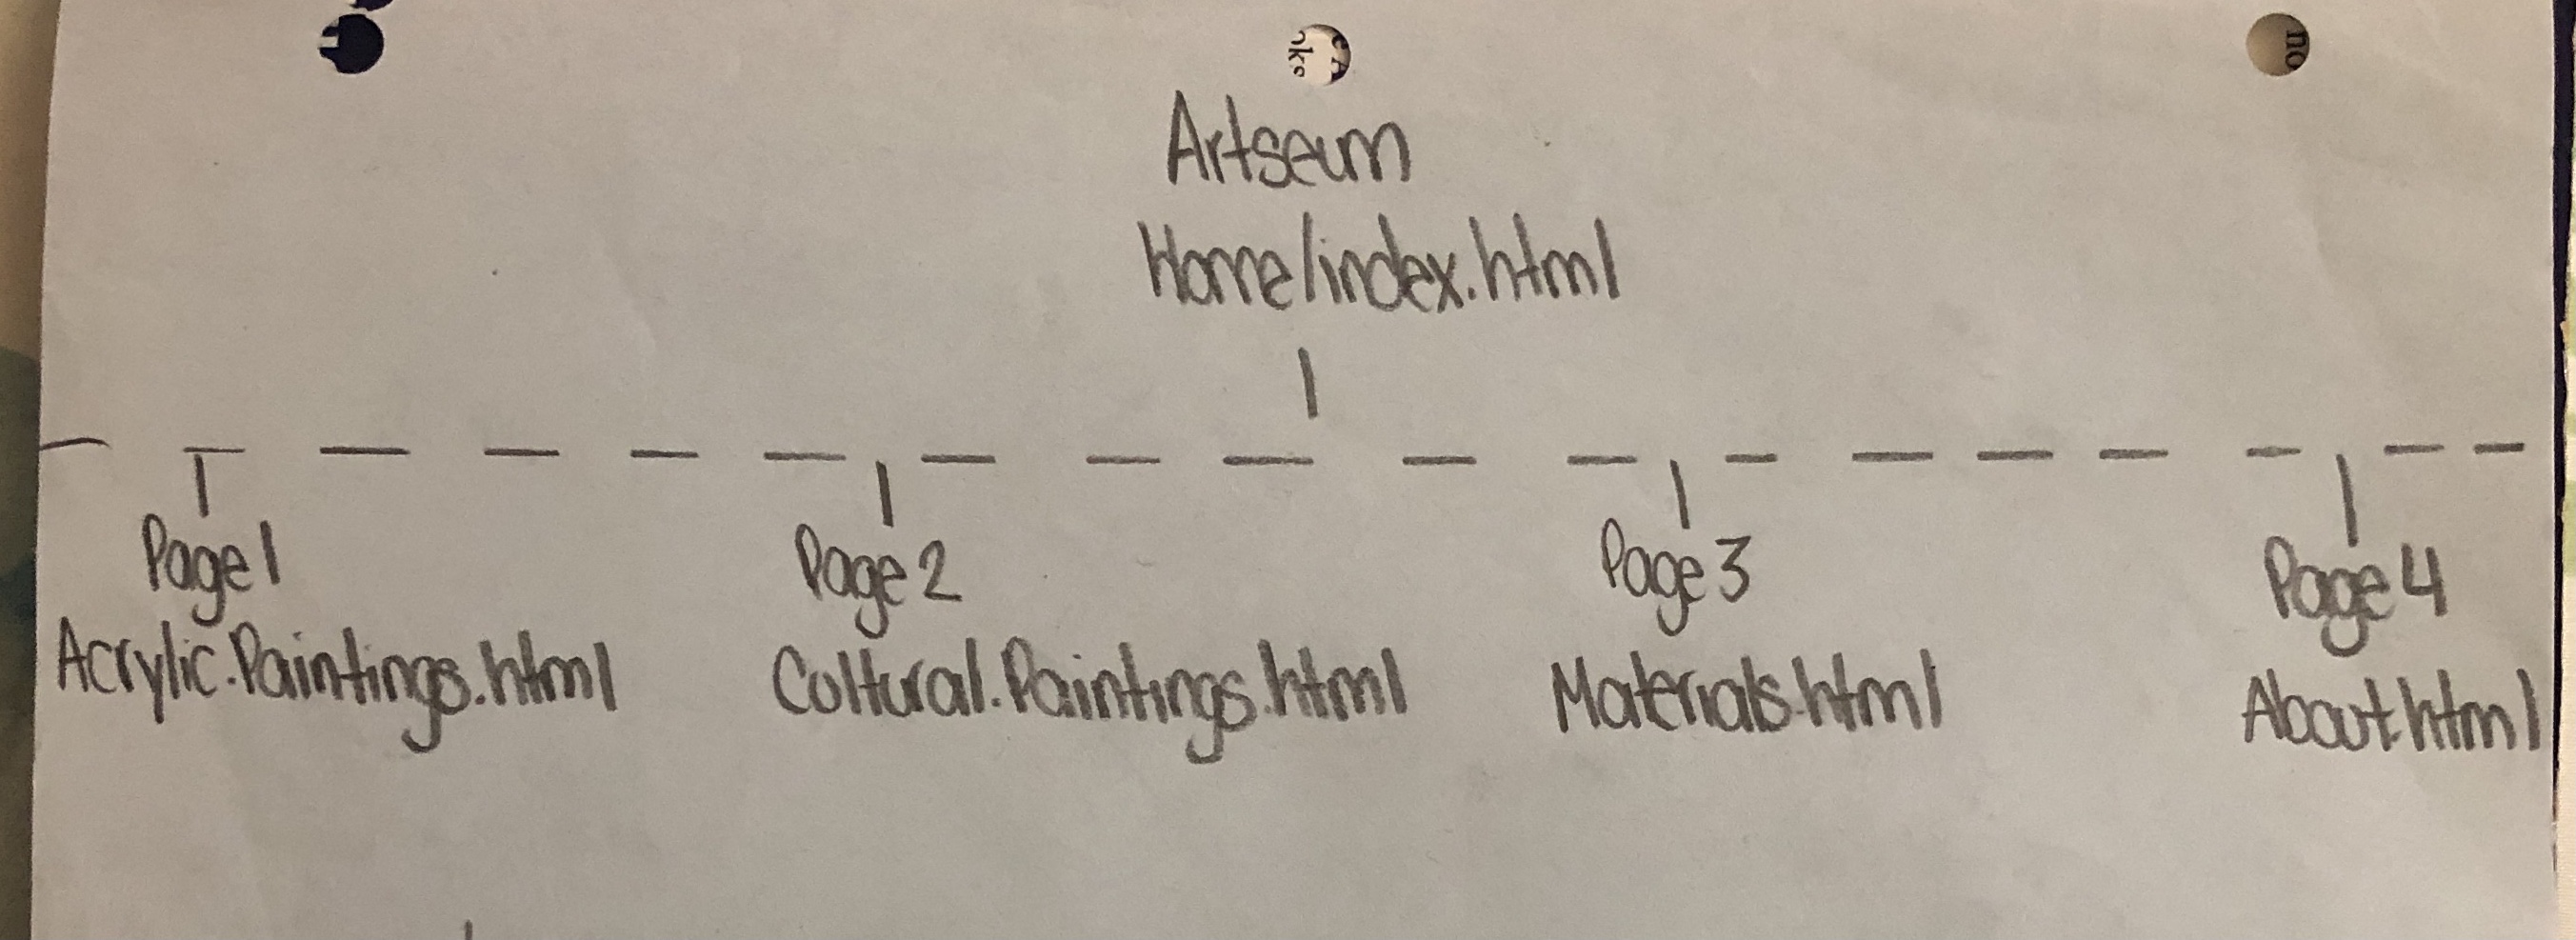 Artseum
Home/index.html
Page 1
Acrylic.Paintings.html
Page 2
Coltural.Paintings.html
Page 3
Materials.html
Page 4
About.html